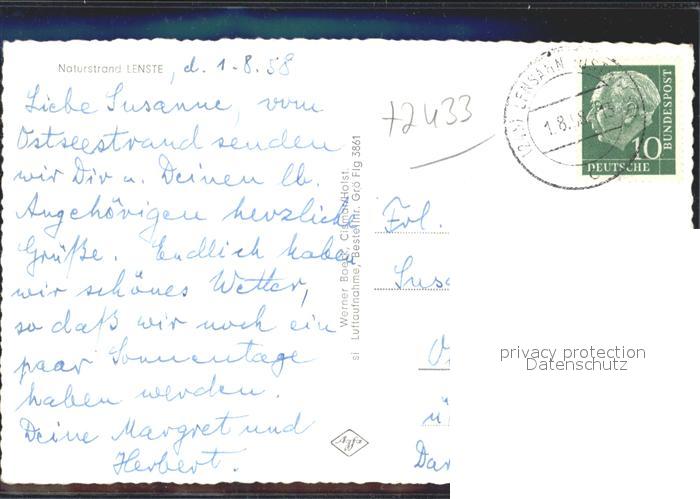 Naturstrand LENSTE, d. 1.8.58
Liebe Susanne, vom
Ostseestrand senden
wir Dir u. Deinen lb.
Angehörigen herzliche
Grüße. Endlich haben
wir schönes Wetter,
so daß wir noch ein
paar Sonnentage
haben werden.
Deine Margret und
Herbert.
Werner Boeck, Cismar/Holst.
si Luftaufnahme, Bestellnr. Grö Flg 3861
Agfa
72433
LENSAHN
1.8.58
10
DEUTSCHE
BUNDESPOST
Frl.
Sus
ü
Dar
privacy protection
Datenschutz